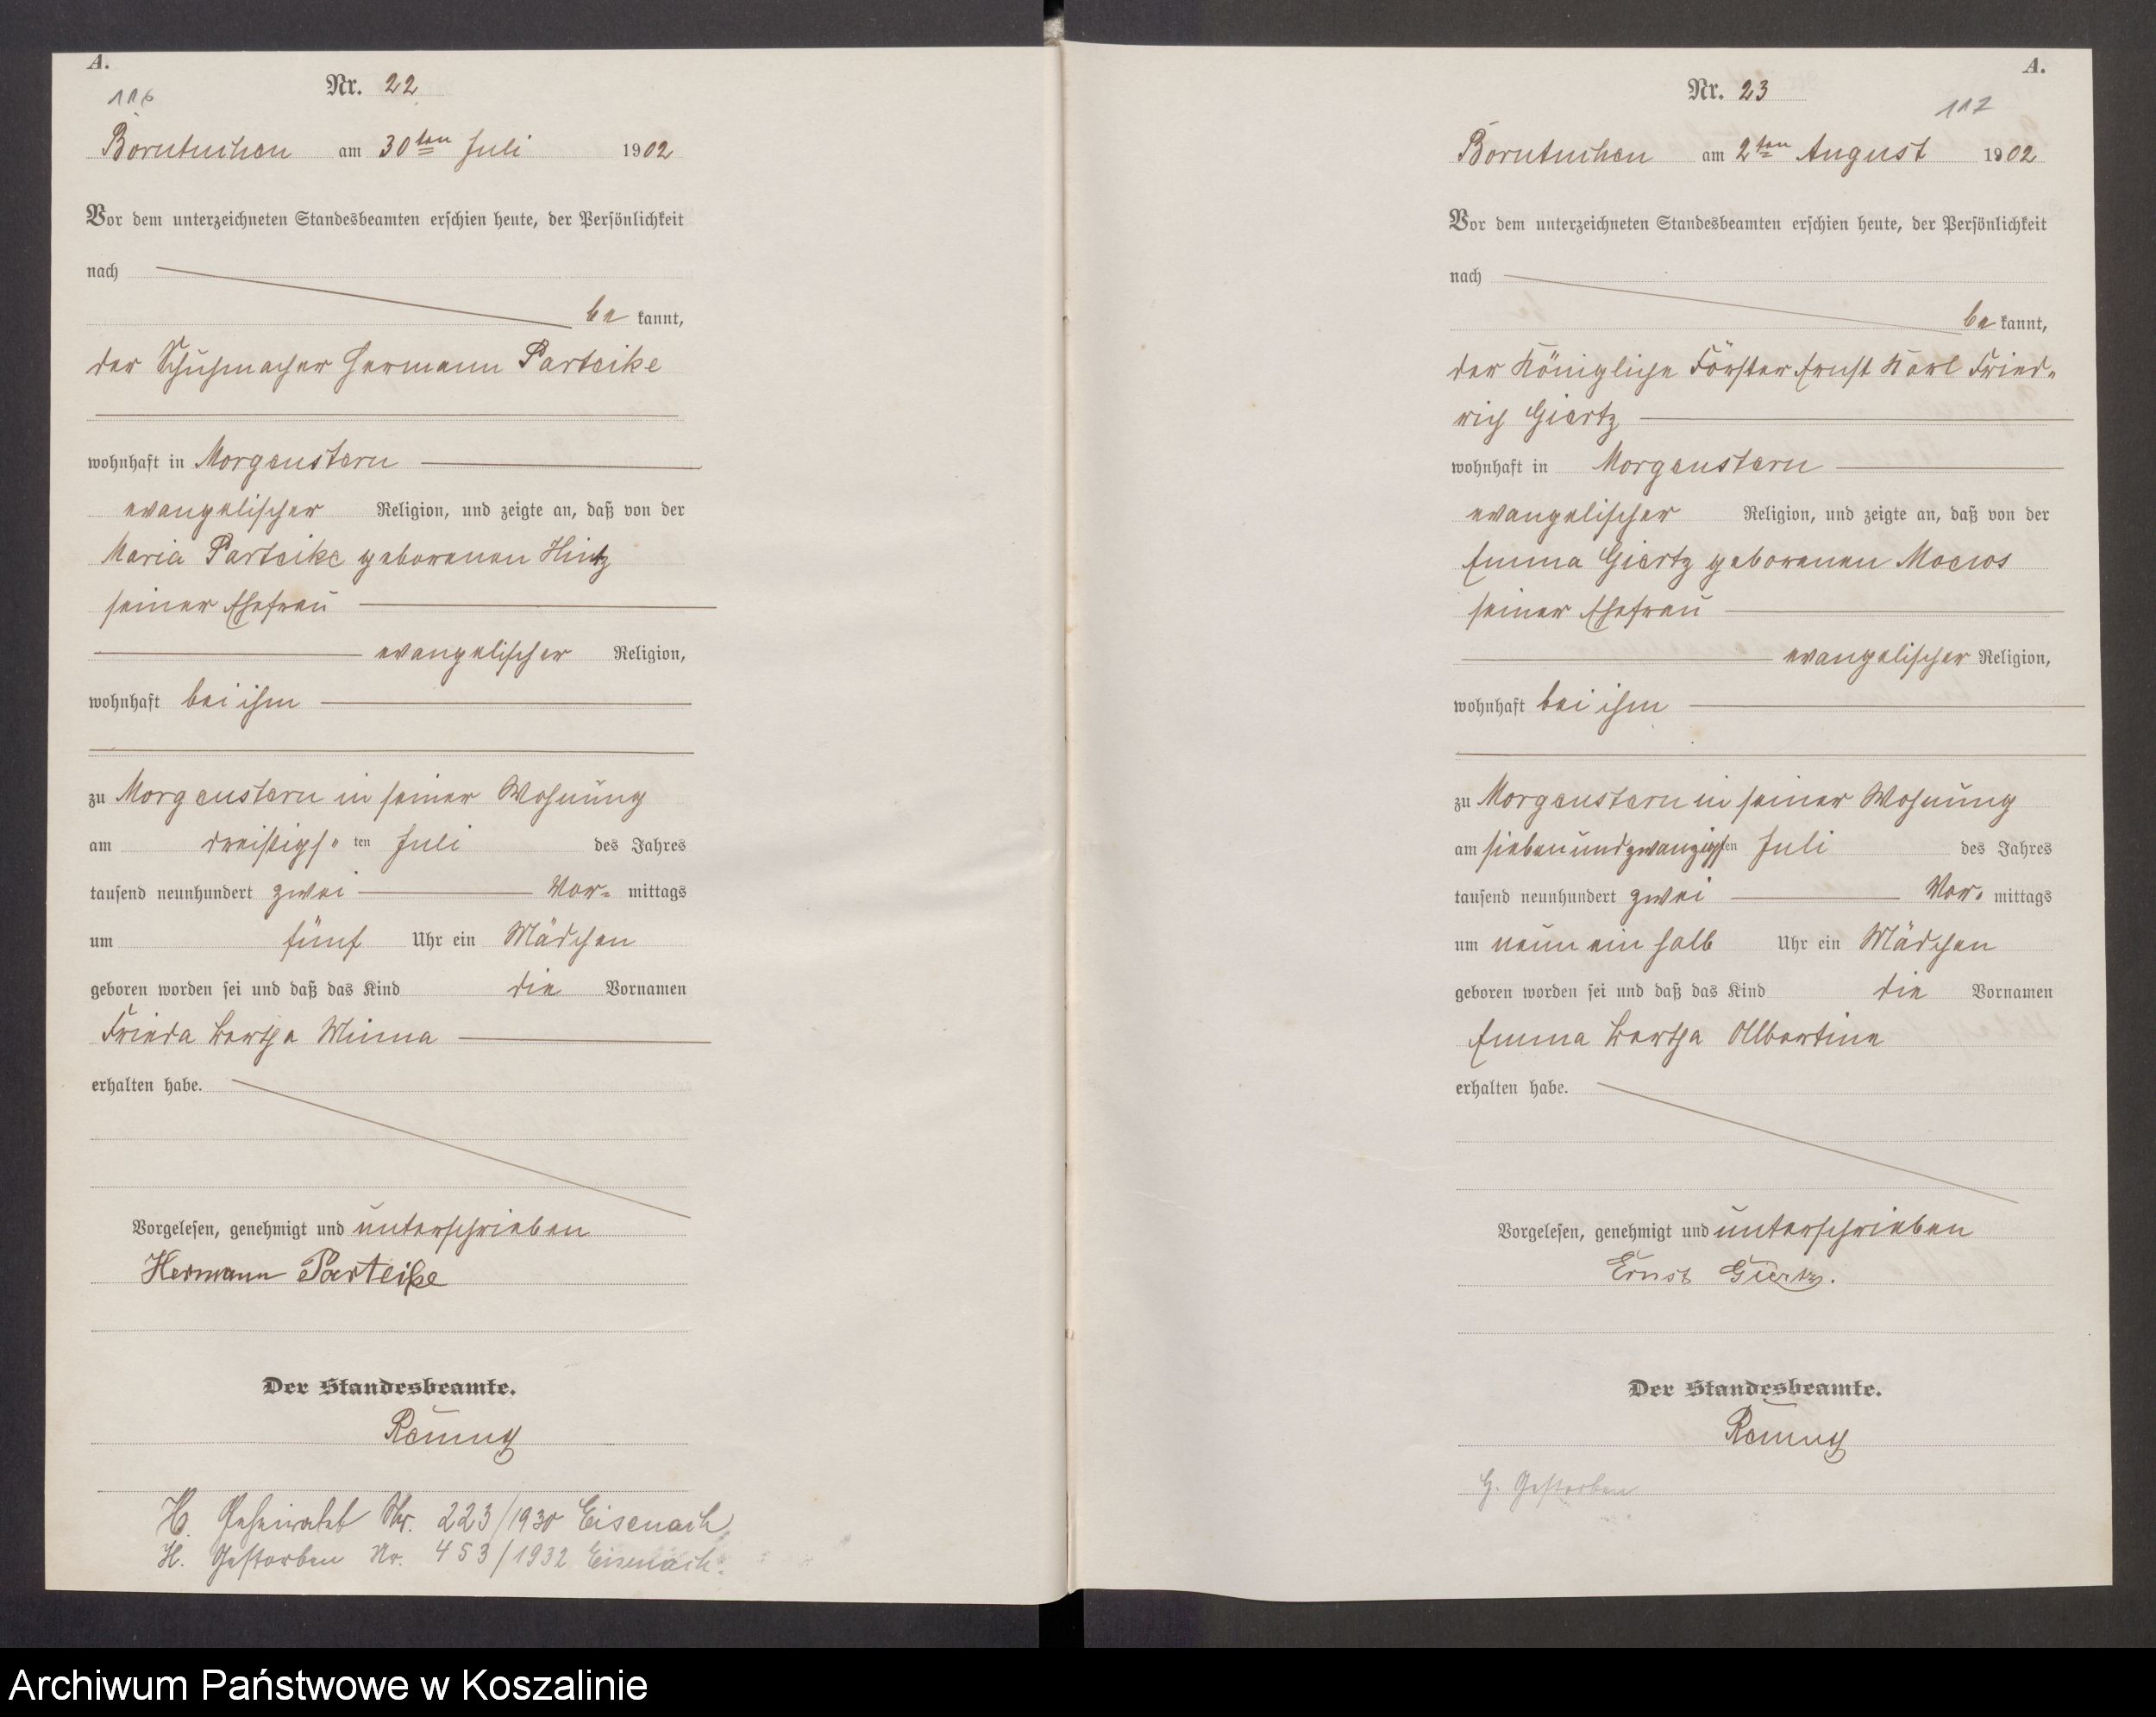 A.
116
Nr. 22
Borntuchen am 30ten Juli 1902
Vor dem unterzeichneten Standesbeamten erschien heute, der Persönlichkeit
nach
be kannt,
der Schuhmacher Hermann Parteike
wohnhaft in Morgenstern
evangelischer Religion, und zeigte an, daß von der
Maria Parteike geborenen Hintz
seiner Ehefrau
evangelischer Religion,
wohnhaft bei ihm
zu Morgenstern in seiner Wohnung
am dreißigs„ ten Juli des Jahres
tausend neunhundert zwei Vor= mittags
um fünf Uhr ein Mädchen
geboren worden sei und daß das Kind die Vornamen
Frieda Bertha Minna
erhalten habe.
Vorgelesen, genehmigt und unterschrieben
Hermann Parteike
Der Standesbeamte.
H. Geheiratet Nr. 223/1930 Eisenach
H. Gestorben Nr. 453/1932 Eisenach.
A.
117
Nr. 23
Borntuchen am 2ten August 1902
Vor dem unterzeichneten Standesbeamten erschien heute, der Persönlichkeit
nach
be kannt,
der Königliche Förster Ernst Karl Fried„
rich Giertz
wohnhaft in Morgenstern
evangelischer Religion, und zeigte an, daß von der
Emma Giertz geborenen
seiner Ehefrau
evangelischer Religion,
wohnhaft bei ihm
zu Morgenstern in seiner Wohnung
am siebenundzwanzigsten Juli des Jahres
tausend neunhundert zwei Vor„ mittags
um neun ein halb Uhr ein Mädchen
geboren worden sei und daß das Kind die Vornamen
Emma Bertha Albertine
erhalten habe.
Vorgelesen, genehmigt und unterschrieben
Ernst Giertz.
Der Standesbeamte.
G. Gestorben
Archiwum Państwowe w Koszalinie